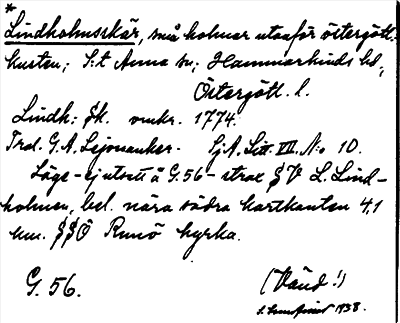 *
Lindholmsskär, små holmar utanför östergötl.
kusten; S:t Anna sn; Hammarkinds hd,
Östergötl. l.
Lindh: sk. omkr. 1774.
Trol. G.A. Lejonanker. SjA. Litt. VII. No 10.
Läge - ej utsatt å G.56 - strax §V L. Lind-
holmen, bel. nära södra kartkanten 4,1
km. §§Ö Runö kyrka.
G. 56. (Vänd!)
1938.